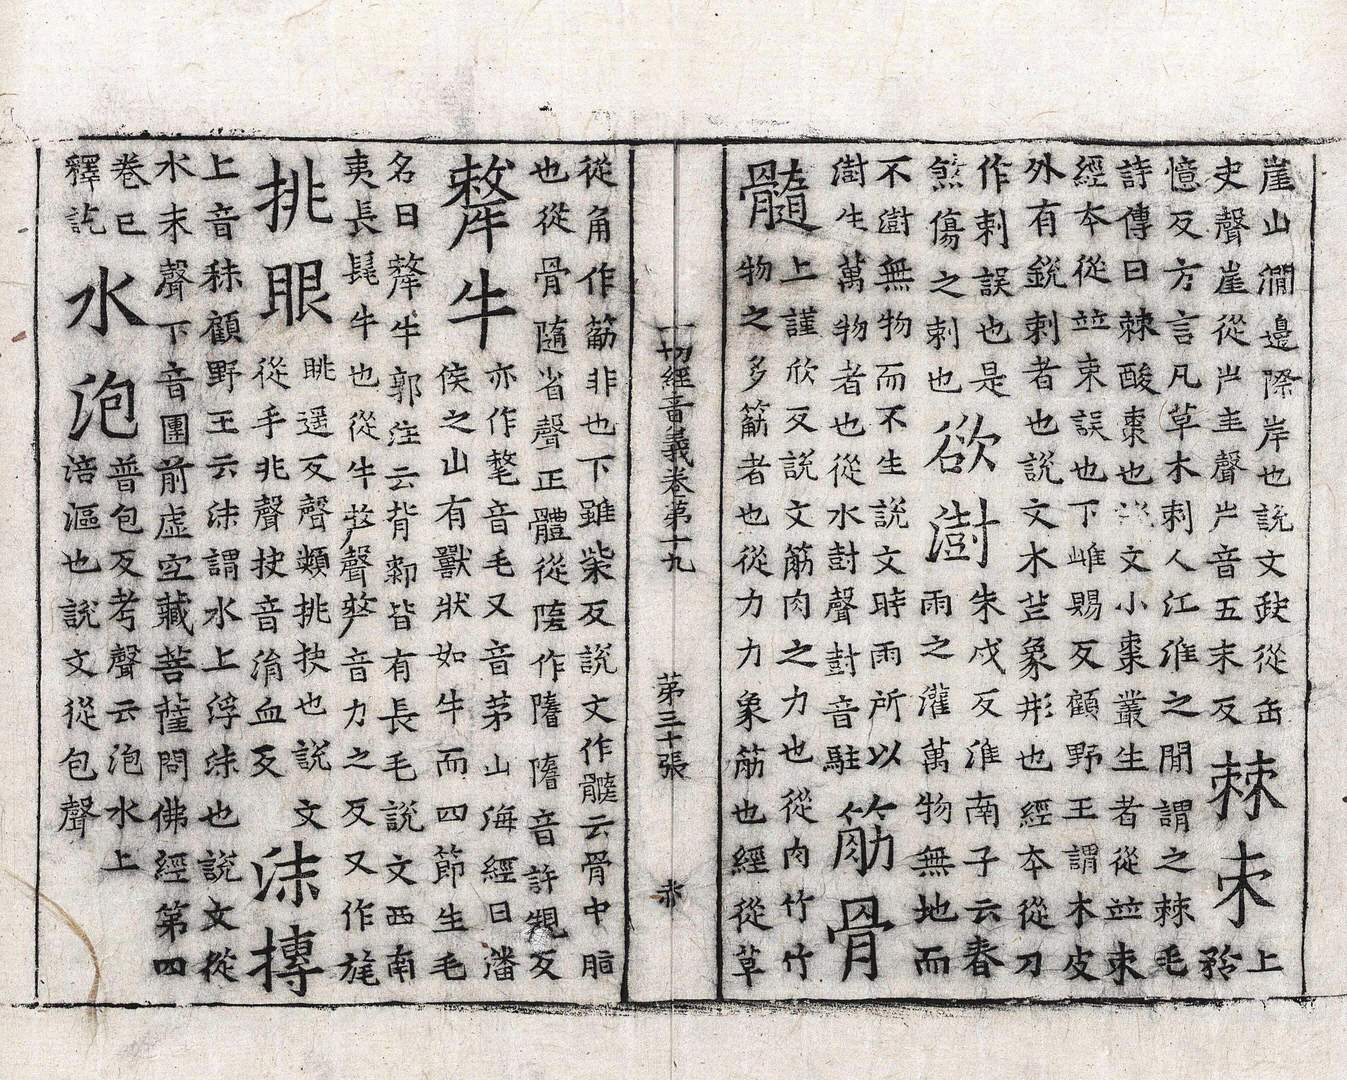 崖山澗邊際岸也說文𨸏從缶
史聲崖從屵圭聲屵音五末反
棘朿
上
矜
憶反方言凡草木刺人江淮之閒謂之棘毛
詩傳曰棘酸棗也文小棗叢生者從竝朿
經本從竝束誤也下雌賜反顧野王謂木皮
外有銳刺者也說文木芒象形也經本從刀
作刺誤也是
煞傷之刺也
欲澍
朱戍反淮南子云春
雨之灌萬物無地而
不澍無物而不生說文時雨所以
澍生萬物者也從水尌聲尌音駐
筋骨
髓
上謹欣反說文筋肉之力也從肉竹竹
物之多筋者也從力力象筋也經從草
一切經音義卷第十九 第三十張 赤
從角作筋非也下雖紫反說文作髓云骨中脂
也從骨隨省聲正體從隓作隓音許規反
犛牛
亦作氂音毛又音茅山海經曰潘
侯之山有獸狀如牛而四節生毛
名曰犛牛郭注云背厀皆有長毛說文西南
夷長髦牛也從牛𠩺聲𠩺音力之反又作旄
挑眼
眺遥反聲類挑抉也說文
從手兆聲抉音淵血反
沫摶
上音秣顧野王云沫謂水上浮沫也說文從
水末聲下音團前虛空藏菩薩問佛經第四
卷已
釋訖
水泡
普包反考聲云泡水上
涪漚也說文從包聲